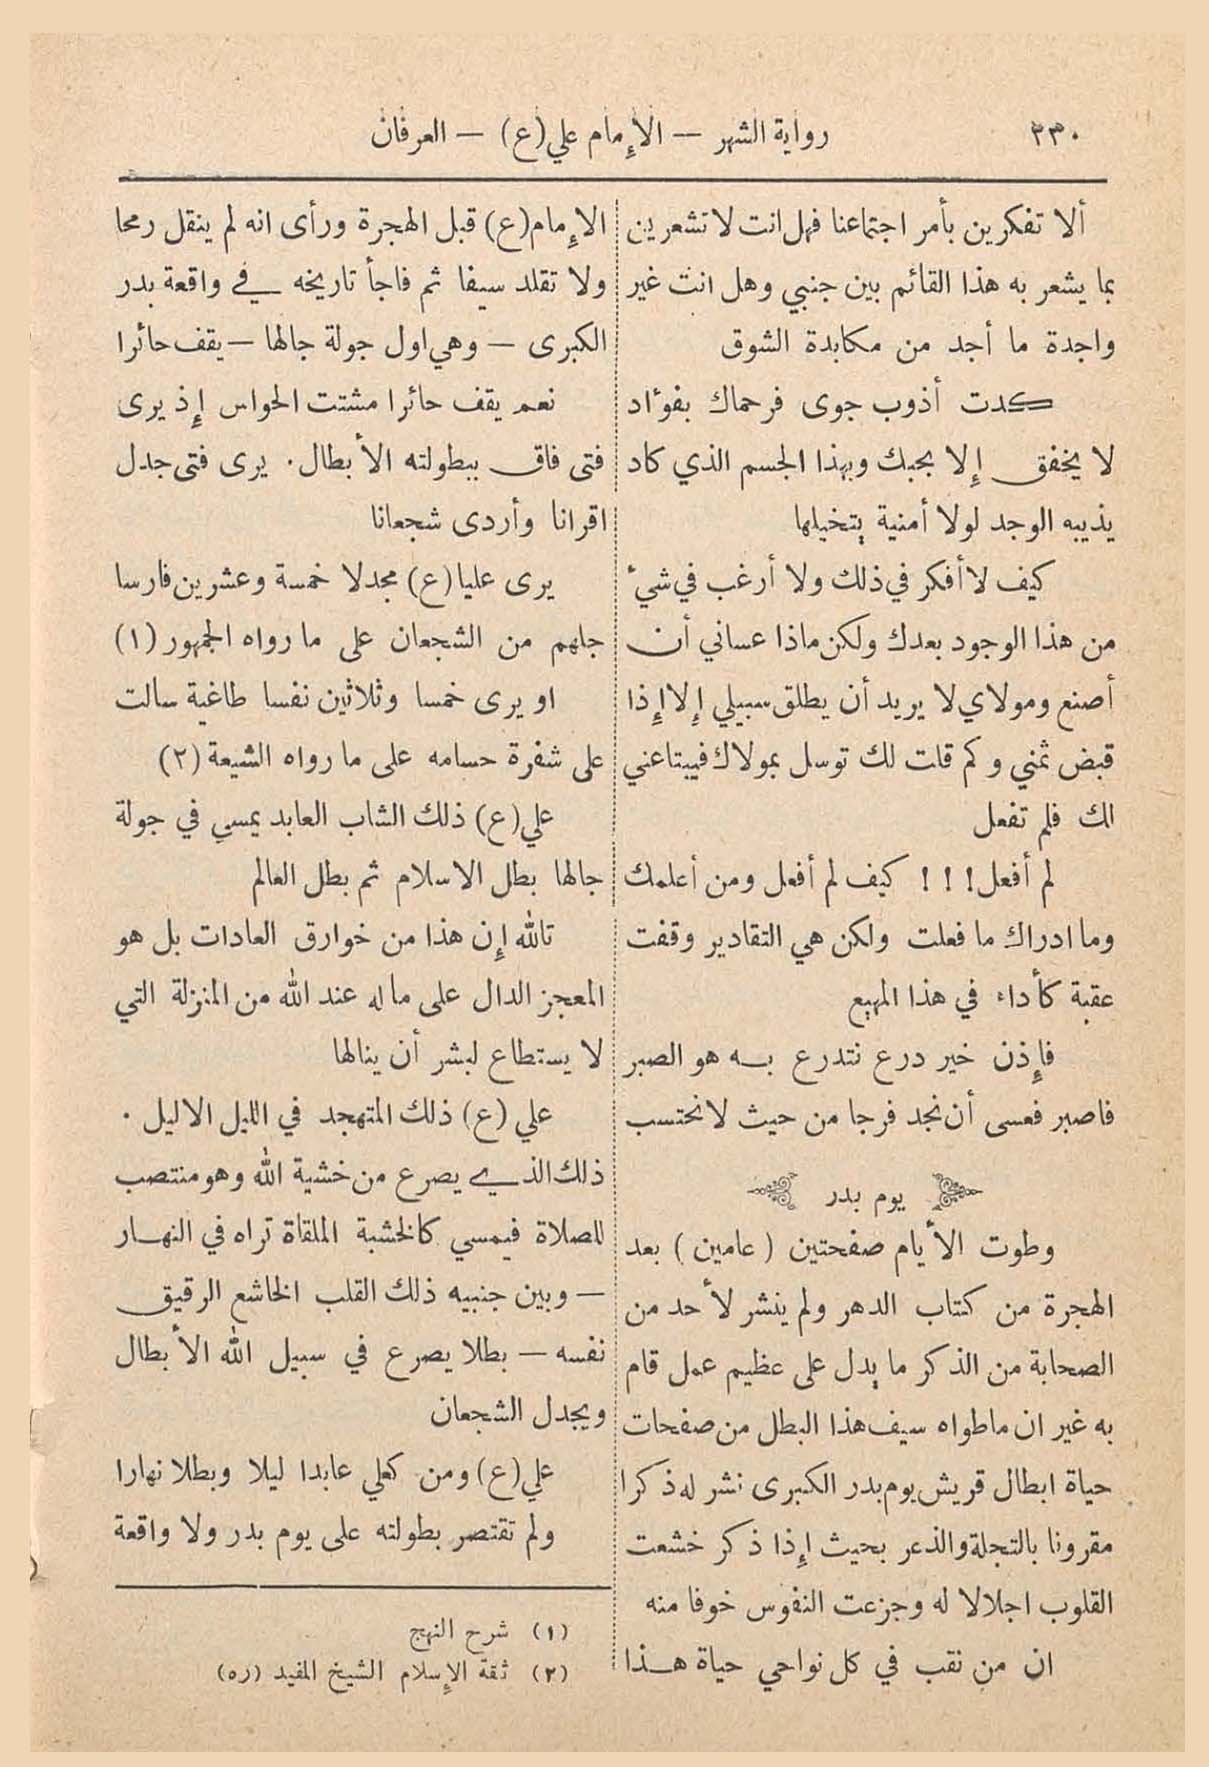 ٣٣٠
رواية الشهر — الإمام علي (ع) — العرفان
ألا تفكرين بأمر اجتماعنا فهل انت لا تشعرين
بما يشعر به هذا القائم بين جنبي وهل انت غير
واجدة ما أجد من مكابدة الشوق
كدت أذوب جوى فرحماك بفؤاد
لا يخفق إلا بحبك وبهذا الجسم الذي كاد
يذيبه الوجد لولا أمنية يتخيلها
كيف لا أفكر في ذلك ولا أرغب في شيء
من هذا الوجود بعدك ولكن ماذا عساني أن
أصنع ومولاي لا يريد أن يطلق سبيلي إلا إذا
قبض ثمني وكم قلت لك توسل بمولاك فيبتاعني
لك فلم تفعل
لم أفعل!!! كيف لم أفعل ومن أعلمك
وما ادراك ما فعلت ولكن هي التقادير وقفت
عقبة كأداء في هذا المهيع
فإذن خير درع نتدرع به هو الصبر
فاصبر فعسى أن نجد فرجا من حيث لا نحتسب
يوم بدر
وطوت الأيام صفحتين (عامين) بعد
الهجرة من كتاب الدهر ولم ينشر لأحد من
الصحابة من الذكر ما يدل على عظيم عمل قام
به غير ان ما طواه سيف هذا البطل من صفحات
حياة ابطال قريش يوم بدر الكبرى نشر له ذكرا
مقرونا بالتجلة والذعر بحيث إذا ذكر خشعت
القلوب اجلالا له وجزعت النفوس خوفا منه
ان من نقب في كل نواحي حياة هذا
الإمام (ع) قبل الهجرة ورأى انه لم ينقل رمحا
ولا تقلد سيفا ثم فاجأ تاريخه في واقعة بدر
الكبرى — وهي اول جولة جالها — يقف حائرا
نعم يقف حائرا مشتت الحواس إذ يرى
فتى فاق ببطولته الأبطال. يرى فتى جدل
اقرانا وأردى شجعانا
يرى عليا (ع) مجدلا خمسة وعشرين فارسا
جلهم من الشجعان على ما رواه الجمهور (١)
او يرى خمسا وثلاثين نفسا طاغية سالت
على شفرة حسامه على ما رواه الشيعة (٢)
علي (ع) ذلك الشاب العابد يمسي في جولة
جالها بطل الاسلام ثم بطل العالم
تالله إن هذا من خوارق العادات بل هو
المعجز الدال على ماله عند الله من المنزلة التي
لا يستطاع لبشر أن ينالها
علي (ع) ذلك المتهجد في الليل الاليل.
ذلك الذي يصرع من خشية الله وهو منتصب
للصلاة فيمسي كالخشبة الملقاة تراه في النهار
— وبين جنبيه ذلك القلب الخاشع الرقيق
نفسه — بطلا يصرع في سبيل الله الأبطال
ويجدل الشجعان
علي (ع) ومن كعلي عابدا ليلا وبطلا نهارا
ولم تقتصر بطولته على يوم بدر ولا واقعة
(١) شرح النهج
(٢) ثقة الإسلام الشيخ المفيد (ره)